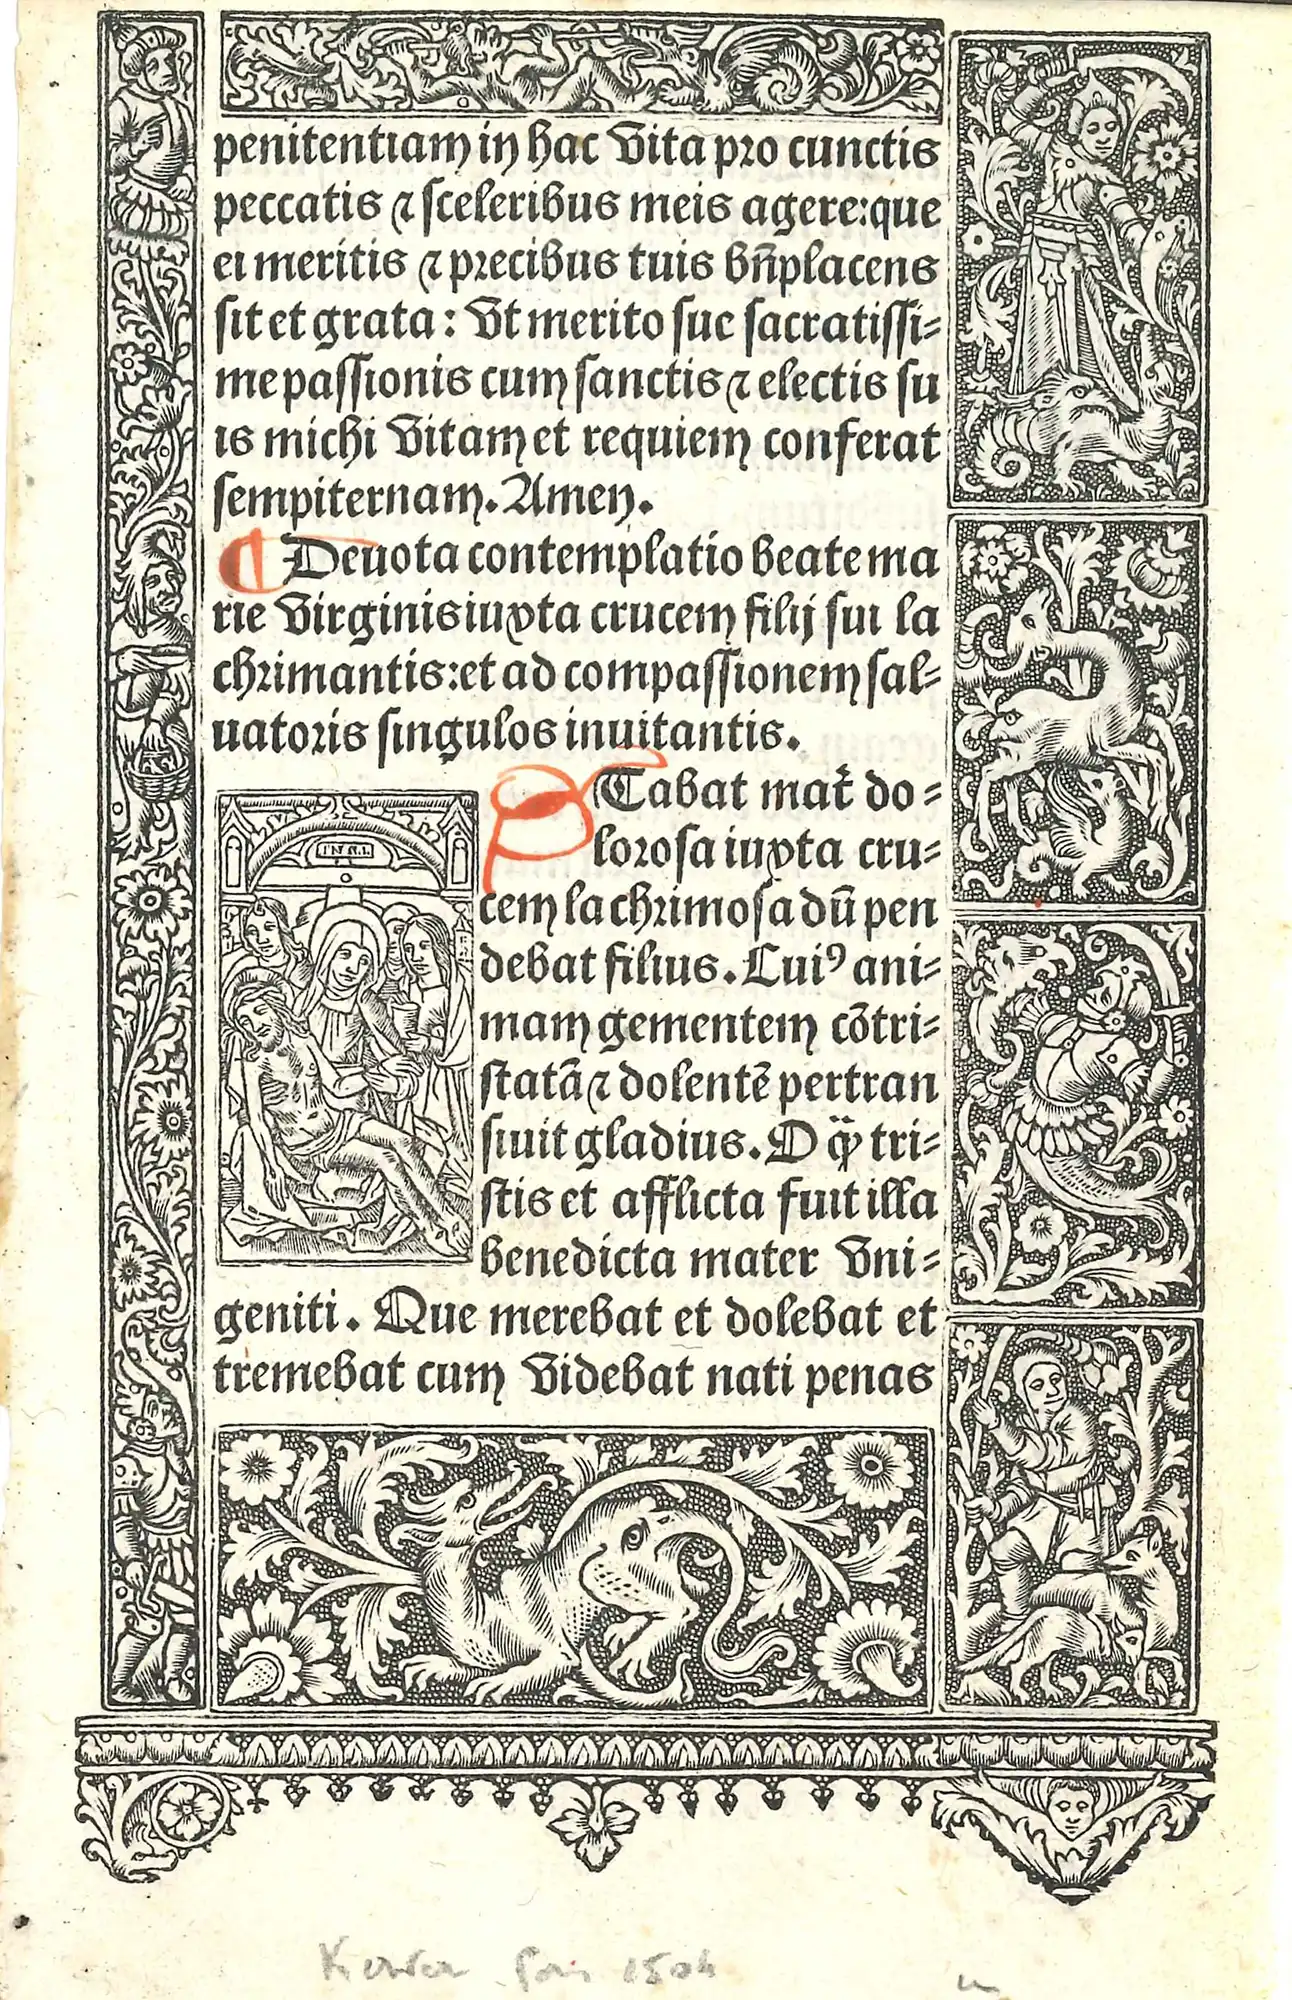 penitentiam in hac vita pro cunctis
peccatis ⁊ sceleribus meis agere:que
ei meritis ⁊ precibus tuis bñplacens
sit et grata: Vt merito sue sacratissi=
me passionis cum sanctis ⁊ electis su
is michi vitam et requiem conferat
sempiternam. Amen.
¶ Deuota contemplatio beate ma
rie virginis iuxta crucem filij sui la
chrimantis:et ad compassionem sal=
uatoris singulos inuitantis.
STabat mat̃ do=
lorosa iuxta cru=
cem lachrimosa dũ pen
debat filius. Cuiꝰ ani=
mam gementem cõtri=
statã ⁊ dolentẽ pertran
siuit gladius. O q̃ʒ tri=
stis et afflicta fuit illa
benedicta mater vni=
geniti. Que merebat et dolebat et
tremebat cum videbat nati penas
Kerver Paris 1504